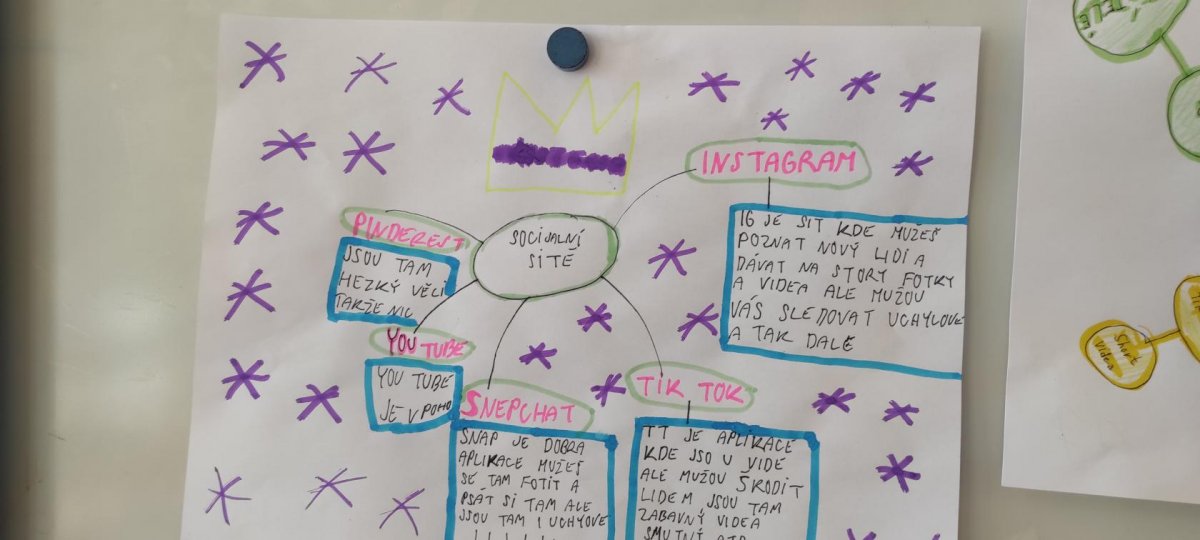 INSTAGRAM
IG JE SIT KDE MUZEŠ
POZNAT NOVÝ LIDI A
DÁVAT NA STORY FOTKY
A VIDEA ALE MUŽOU
VÁS SLEDOVAT UCHYLOVÉ
A TAK DALĚ
SOCIJALNÍ
SÍTĚ
PINDEREST
JSOU TAM
HEZKÝ VĚCI
TAKŽE NIC
YOU TUBE
YOU TUBE
JE V POHO
SNEPCHAT
SNAP JE DOBRA
APLIKACE MUŽEŠ
SE TAM FOTIT A
PSÁT SI TAM ALE
JSOU TAM I UCHYLOVE
TIK TOK
TT JE APLIKACE
KDE JSO U VIDE
ALE MUŽOU ŠKODIT
LIDEM JSOU TAM
ZABAVNÝ VIDEA
SMUTNÝ ATD
Short
videa